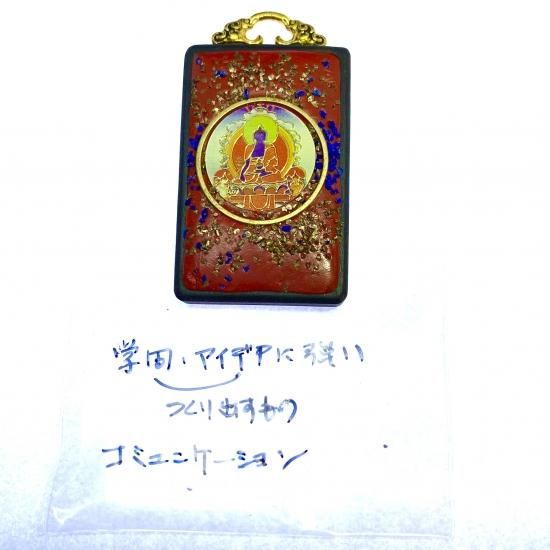 学問、アイデアに強い
つくり出すもの
コミュニケーション